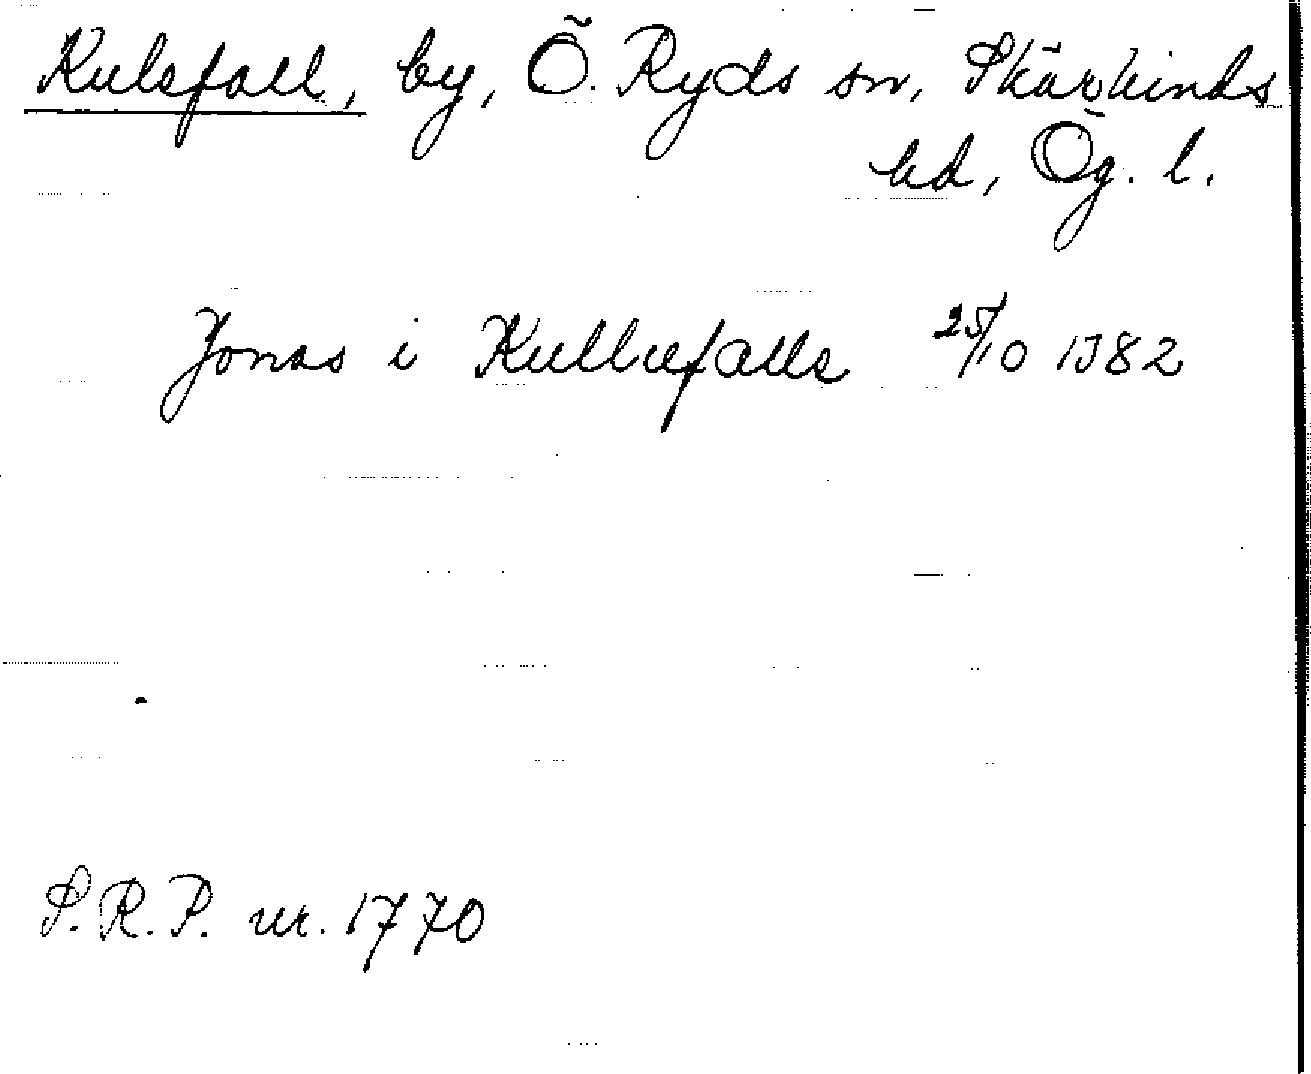 Kulsfall, by, Ö. Ryds sn, Skärkinds
hd, Ög. l.
Jonas i Kullufalls 25/10 1382
S.R.P. nr. 1770